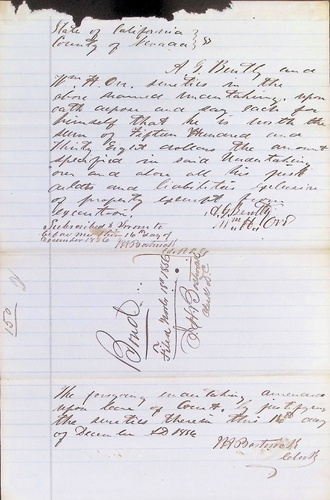 State of California }
County of Nevada } ss
A. G. Bently and
Wm. H. Orr sureties in the
above named undertaking, upon
oath depose and say each for
himself that he is worth the
sum of Fifteen Hundred and
Thirty Eight dollars the amount
specified in said Undertaking
over and above all his just
debts and liabilities exclusive
of property exempt from
execution,
A. G. Bently
Wm. H. Orr
Subscribed & Sworn to
before me this 16th day of
November 1856
Bond
Filed
1856
150
The foregoing undertaking amended
upon leave of Court by justifying
the sureties therein this 16th day
of December AD 1856
Clerk